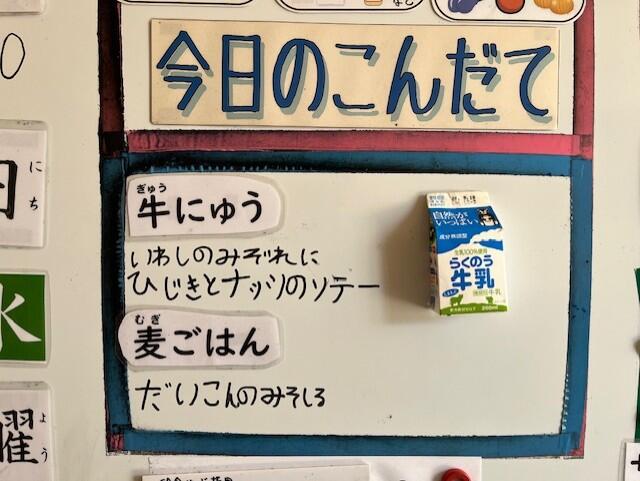 など
今日のこんだて
0
日
にち
ぎゅう
牛にゅう
いわしのみぞれに
ひじきとナッツのソテー
むぎ
麦ごはん
だいこんのみそしる
自然が
いっぱい
成分無調整
生乳100%使用
らくのう
牛乳
200ml
水
曜
よう